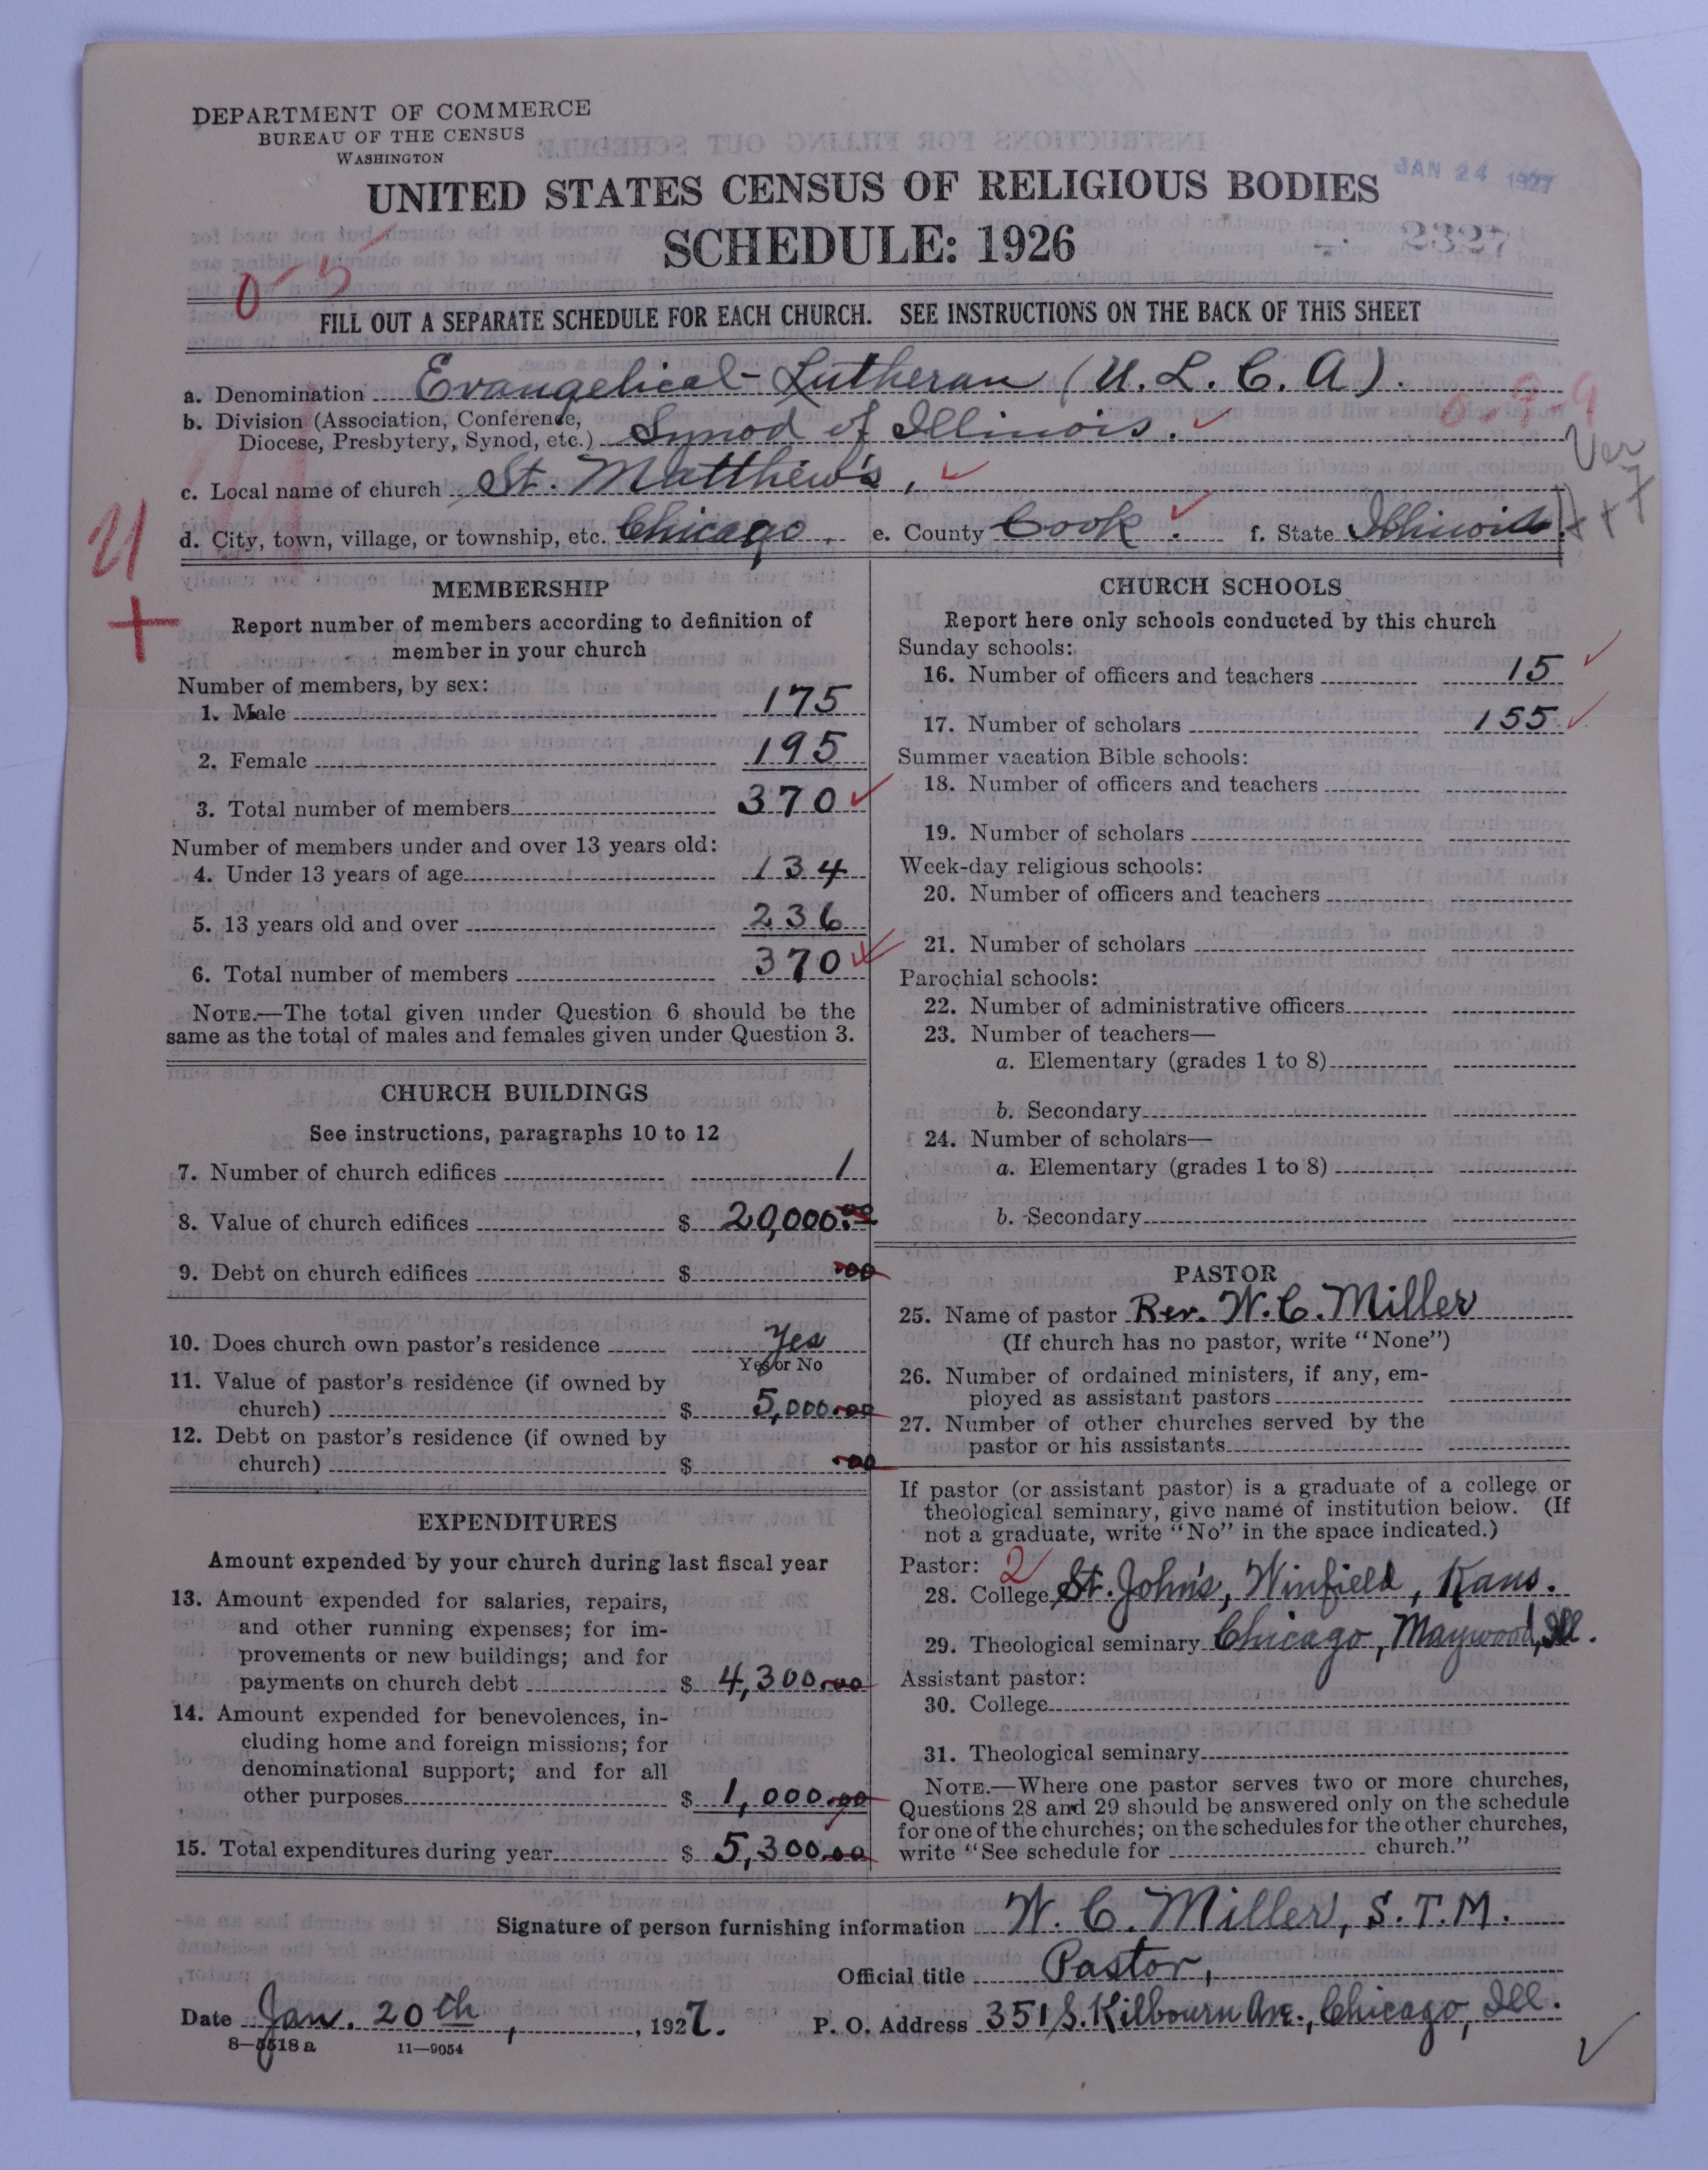 DEPARTMENT OF COMMERCE
BUREAU OF THE CENSUS
WASHINGTON
UNITED STATES CENSUS OF RELIGIOUS BODIES
JAN 24 1927
SCHEDULE: 1926
2327
0-5
FILL OUT A SEPARATE SCHEDULE FOR EACH CHURCH. SEE INSTRUCTIONS ON THE BACK OF THIS SHEET
a. Denomination Evangelical-Lutheran (U. L. C. A).
b. Division (Association, Conference,
Diocese, Presbytery, Synod, etc.) Synod of Illinois.
0-9-9
Ver
c. Local name of church St. Matthew's,
d. City, town, village, or township, etc. Chicago. e. County Cook. f. State Illinois.
MEMBERSHIP
Report number of members according to definition of
member in your church
Number of members, by sex:
1. Male 175
2. Female 195
3. Total number of members 370
Number of members under and over 13 years old:
4. Under 13 years of age 134
5. 13 years old and over 236
6. Total number of members 370
NOTE.—The total given under Question 6 should be the
same as the total of males and females given under Question 3.
CHURCH BUILDINGS
See instructions, paragraphs 10 to 12
7. Number of church edifices 1
8. Value of church edifices $ 20,000.00
9. Debt on church edifices $ .00
10. Does church own pastor's residence Yes
Yes or No
11. Value of pastor's residence (if owned by
church) $ 5,000.00
12. Debt on pastor's residence (if owned by
church) $ .00
EXPENDITURES
Amount expended by your church during last fiscal year
13. Amount expended for salaries, repairs,
and other running expenses; for im-
provements or new buildings; and for
payments on church debt $ 4,300.00
14. Amount expended for benevolences, in-
cluding home and foreign missions; for
denominational support; and for all
other purposes $ 1,000.00
15. Total expenditures during year $ 5,300.00
CHURCH SCHOOLS
Report here only schools conducted by this church
Sunday schools:
16. Number of officers and teachers 15
17. Number of scholars 155
Summer vacation Bible schools:
18. Number of officers and teachers
19. Number of scholars
Week-day religious schools:
20. Number of officers and teachers
21. Number of scholars
Parochial schools:
22. Number of administrative officers
23. Number of teachers—
a. Elementary (grades 1 to 8)
b. Secondary
24. Number of scholars—
a. Elementary (grades 1 to 8)
b. Secondary
PASTOR
25. Name of pastor Rev. W. C. Miller
(If church has no pastor, write "None")
26. Number of ordained ministers, if any, em-
ployed as assistant pastors
27. Number of other churches served by the
pastor or his assistants
If pastor (or assistant pastor) is a graduate of a college or
theological seminary, give name of institution below. (If
not a graduate, write "No" in the space indicated.)
Pastor: 2
28. College St. John's, Winfield, Kans.
29. Theological seminary Chicago, Maywood, Ill.
Assistant pastor:
30. College
31. Theological seminary
NOTE.—Where one pastor serves two or more churches,
Questions 28 and 29 should be answered only on the schedule
for one of the churches; on the schedules for the other churches,
write "See schedule for church."
Signature of person furnishing information W. C. Miller, S.T.M.
Official title Pastor,
Date Jan. 20th, 1927. P. O. Address 351 S. Kilbourn Ave., Chicago, Ill.
8-5518a 11-9054